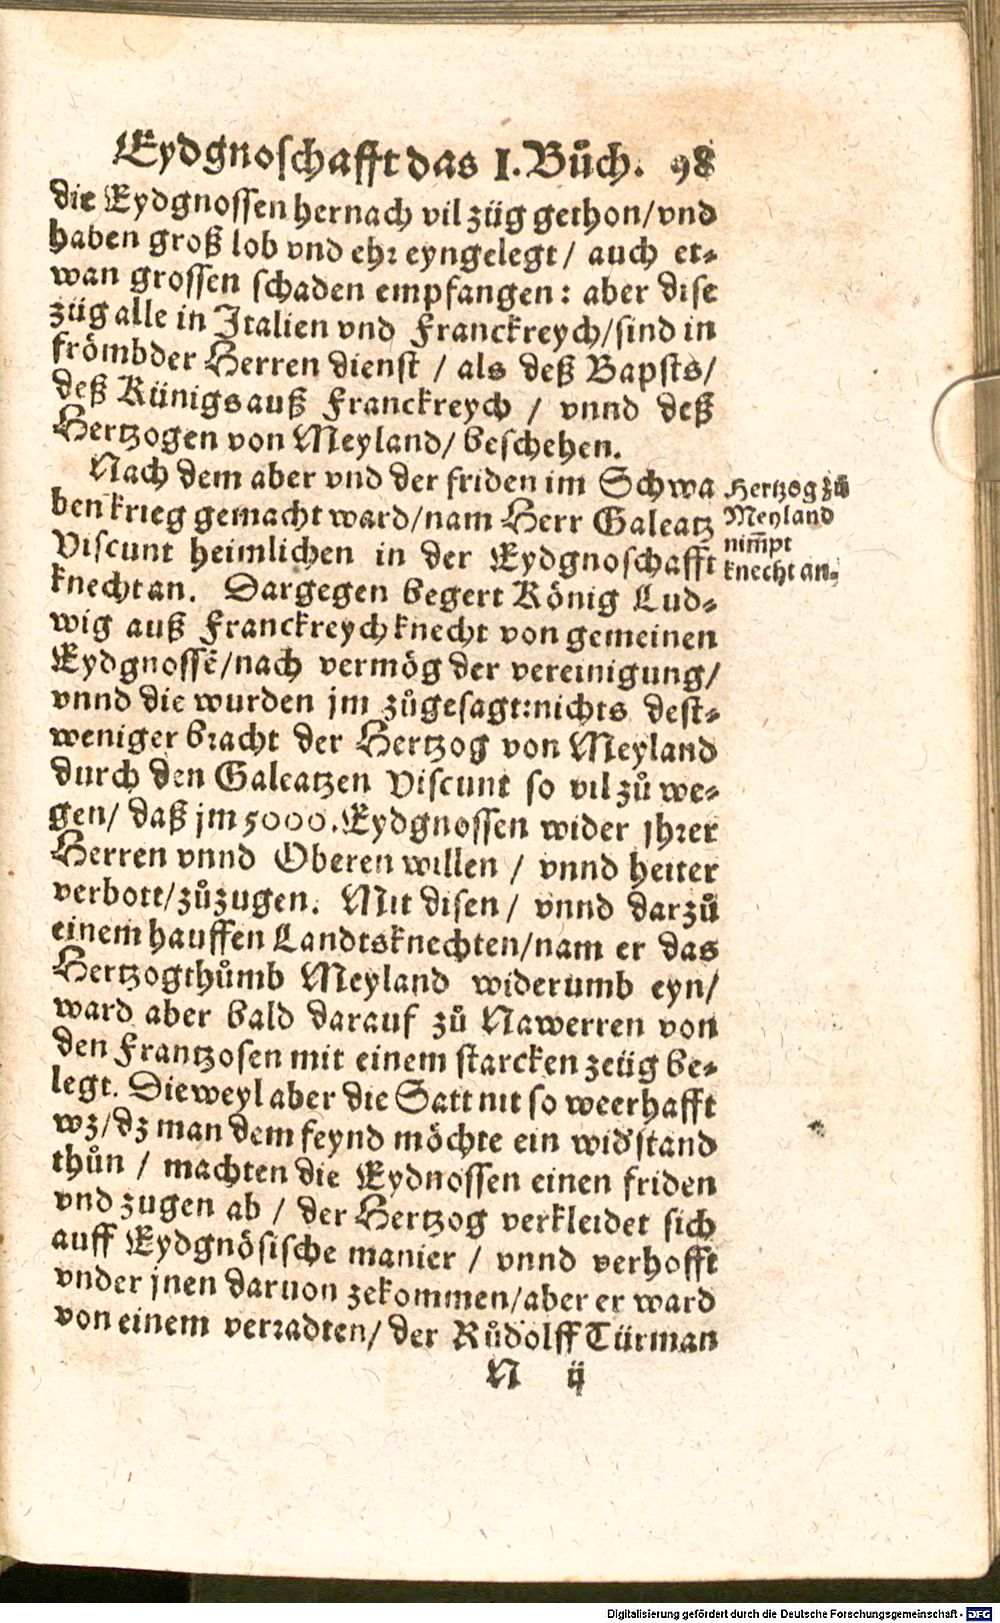 Eydgnoschafft das I. Bůch. 98
die Eydgnossen hernach vil züg gethon/vnd
haben groß lob vnd ehr eyngelegt / auch et-
wan grossen schaden empfangen: aber dise
züg alle in Italien vnd Franckreych/sind in
frömbder Herren dienst / als deß Bapsts/
deß Künigs auß Franckreych / vnnd deß
Hertzogen von Meyland/ beschehen.
Nach dem aber vnd der friden im Schwa
ben krieg gemacht ward/nam Herr Galeatz
Viscunt heimlichen in der Eydgnoschafft
knecht an. Dargegen begert König Lud-
wig auß Franckreych knecht von gemeinen
Eydgnossẽ/nach vermög der vereinigung/
vnnd die wurden jm zůgesagt:nichts dest-
weniger bracht der Hertzog von Meyland
durch den Galeatzen Viscunt so vil zů we-
gen/ daß jm 5000. Eydgnossen wider jhrer
Herren vnnd Oberen willen / vnnd heiter
verbott/zůzugen. Mit disen / vnnd darzů
einem hauffen Landtsknechten/nam er das
Hertzogthůmb Meyland widerumb eyn/
ward aber bald darauf zů Nawerren von
den Frantzosen mit einem starcken zeüg be-
legt. Dieweyl aber die Satt nit so weerhafft
wz/dz man dem feynd möchte ein wid'stand
thůn / machten die Eydnossen einen friden
vnd zugen ab / der Hertzog verkleidet sich
auff Eydgnösische manier / vnnd verhofft
vnder jnen daruon zekommen/aber er ward
von einem verradten/ der Růdolff Türman
N ij
Hertzog zů
Meyland
nim̃pt
knecht an.
Digitalisierung gefördert durch die Deutsche Forschungsgemeinschaft - DFG